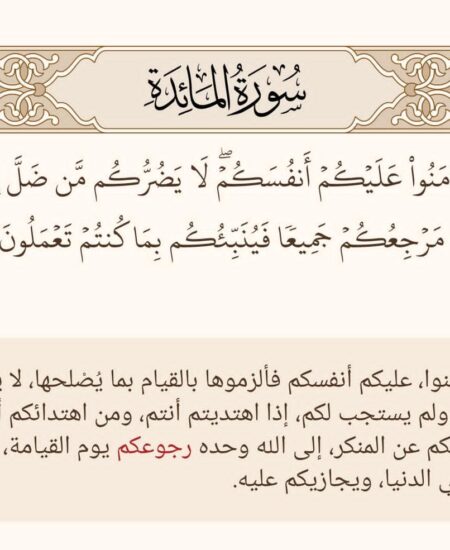 سُورَةُ المَائِدَةِ
مَنُواْ عَلَيۡكُمۡ أَنفُسَكُمۡۖ لَا يَضُرُّكُم مَّن ضَلَّ
مَرۡجِعُكُمۡ جَمِيعٗا فَيُنَبِّئُكُم بِمَا كُنتُمۡ تَعۡمَلُونَ
نوا، عليكم أنفسكم فألزموها بالقيام بما يُصْلحها، لا
ولم يستجب لكم، إذا اهتديتم أنتم، ومن اهتدائكم أ
كم عن المنكر، إلى الله وحده رجوعكم يوم القيامة،
ي الدنيا، ويجازيكم عليه.